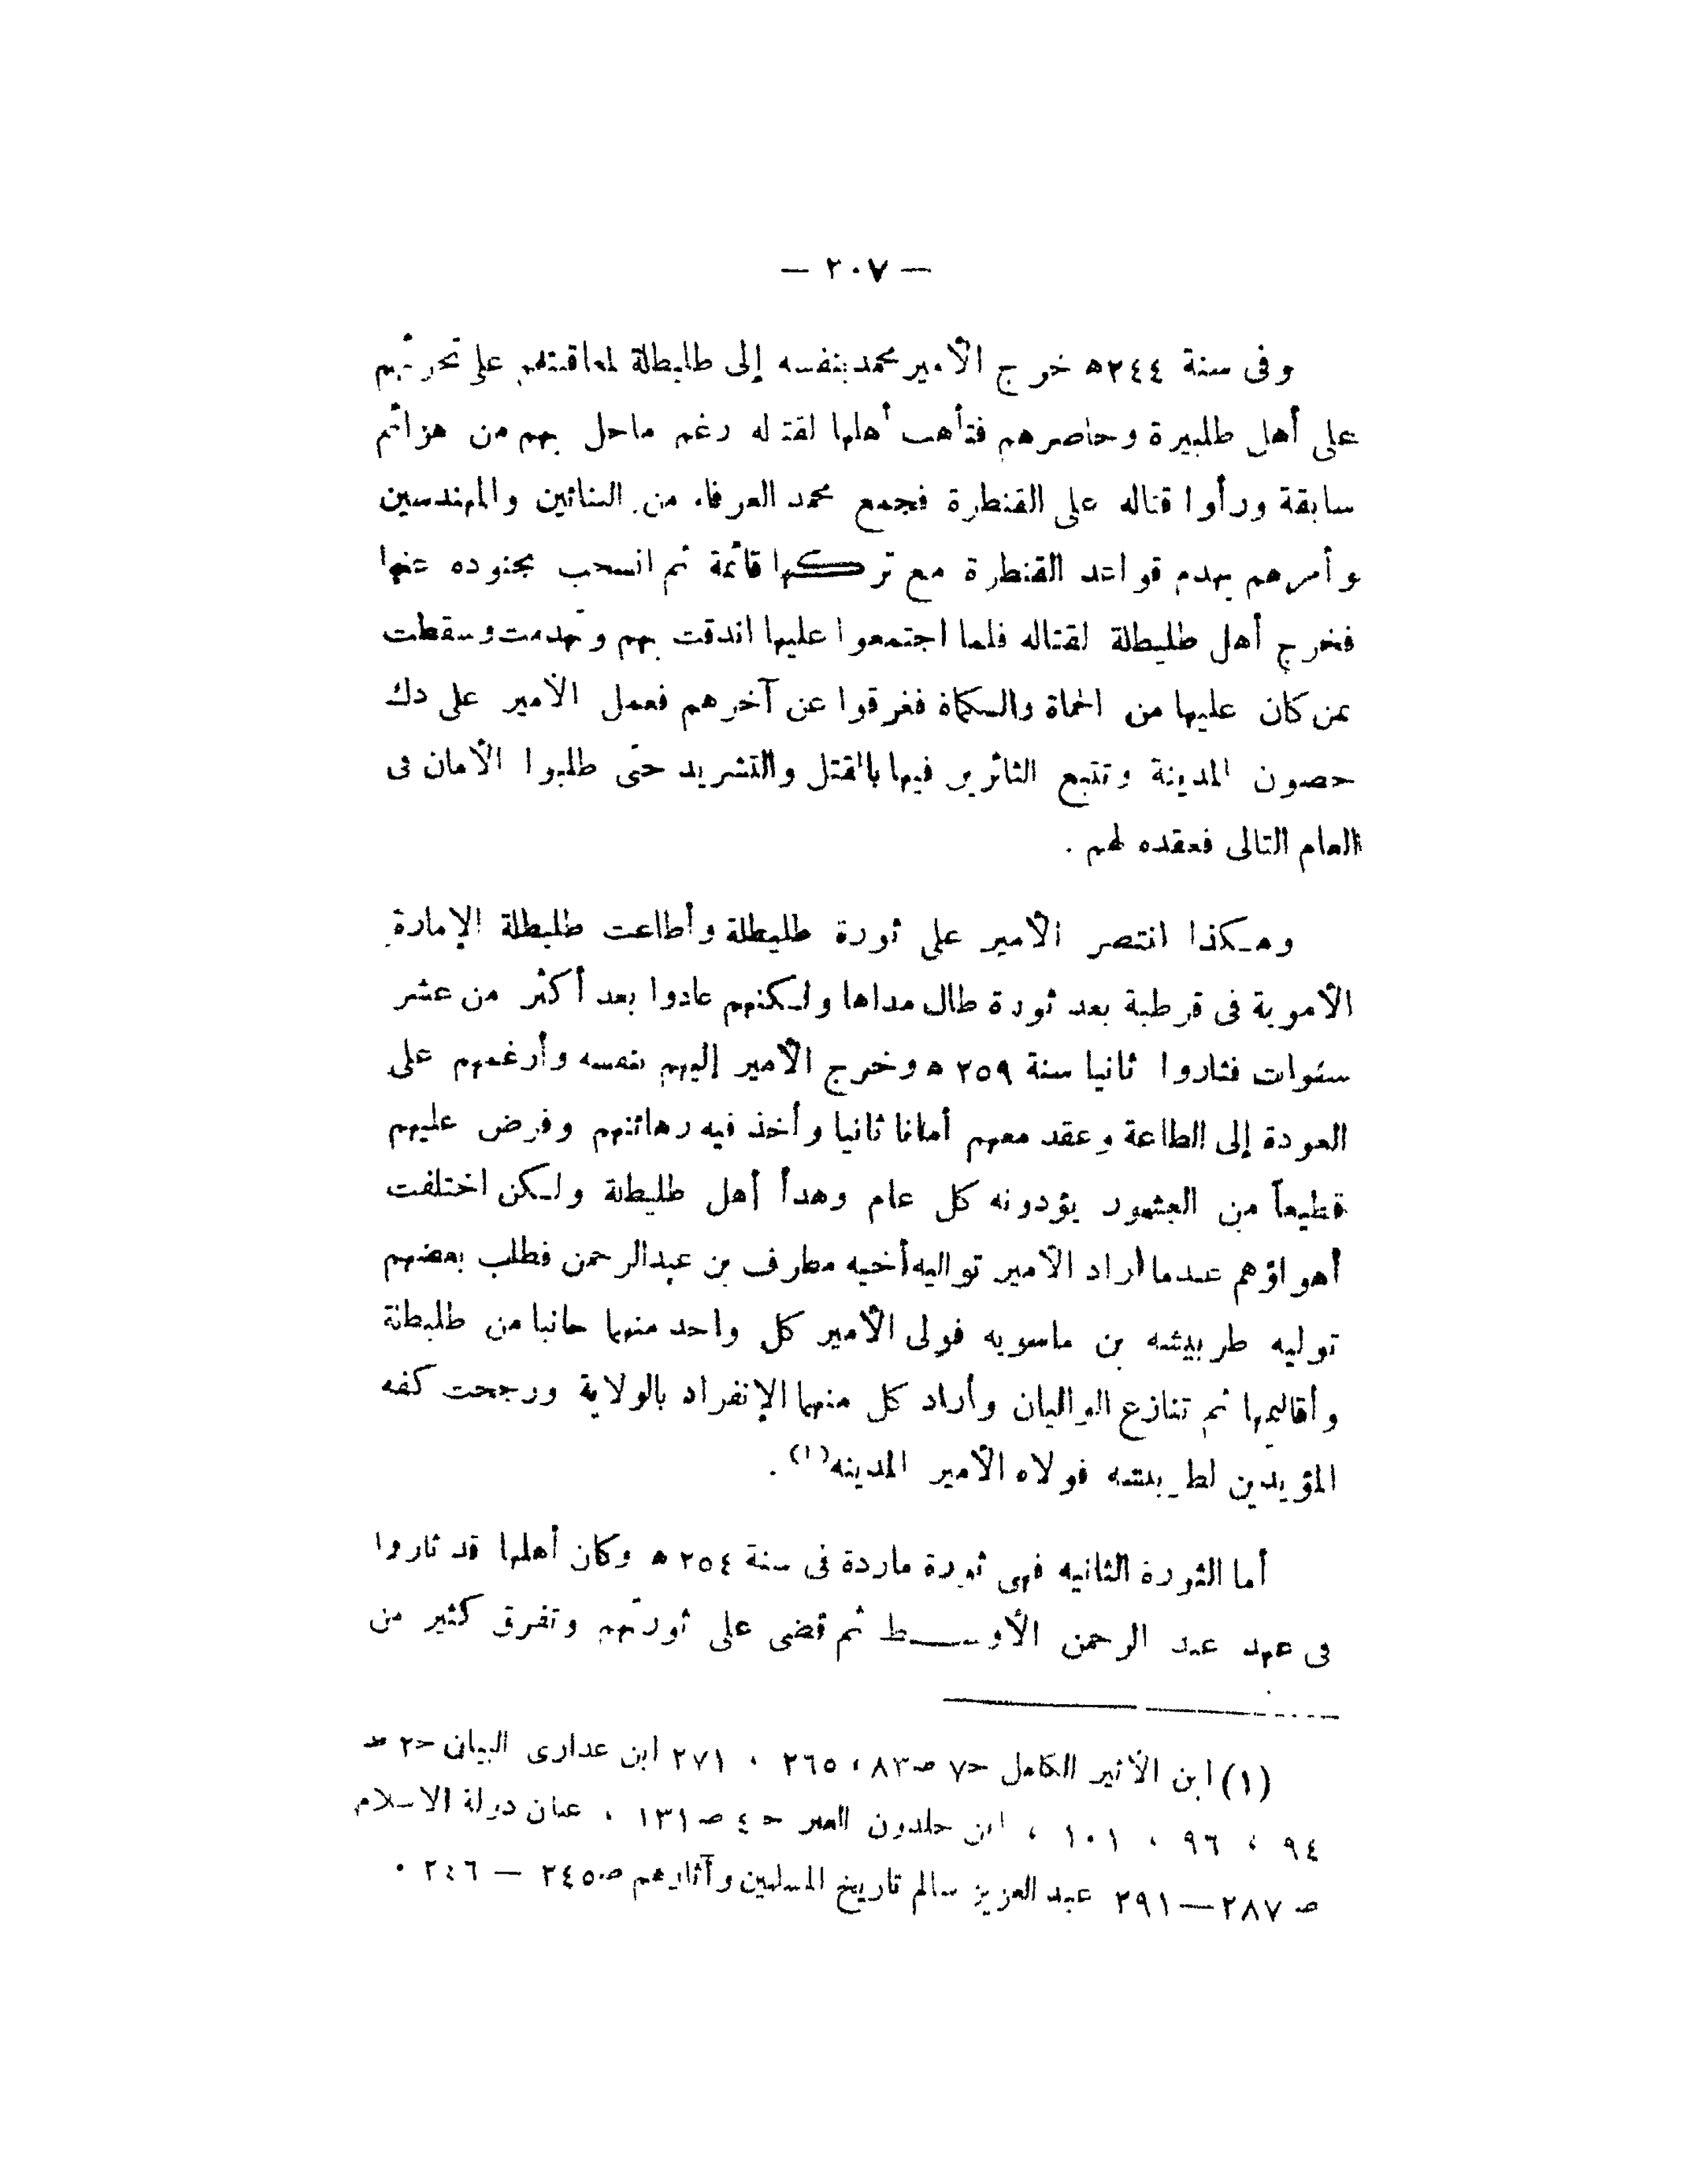 — ٢٠٧ —
وفى سنة ٢٤٤ھ خرج الأمير محمد بنفسه إلى طليطلة لمعاقبتهم على تحرشهم
على أهل طلبيرة وحاصرهم فتأهب أهلها لقتاله رغم ماحل بهم من هزائم
سابقة ورأوا قتاله على القنطرة فجمع محمد العرفاء من البنائين والمهندسين
وأمرهم بهدم قواعد القنطرة مع تركها قائمة ثم انسحب بجنوده عنها
فخرج أهل طليطلة لقتاله فلما اجتمعوا عليها اندقت بهم وتهدمت وسقطت
بمن كان عليها من الحماة والكماة فغرقوا عن آخرهم فعمل الأمير على دك
حصون المدينة وتتبع الثائرين فيها بالقتل والتشريد حتى طلبوا الأمان فى
العام التالى فعقده لهم .
وهكذا انتصر الأمير على ثورة طليطلة وأطاعت طليطلة الإمارة
الأموية فى قرطبة بعد ثورة طال مداها ولكنهم عادوا بعد أكثر من عشر
سنوات فثاروا ثانيا سنة ٢٥٩ ھ وخرج الأمير إليهم بنفسه وأرغمهم على
العودة إلى الطاعة وعقد معهم أمانا ثانيا وأخذ فيه رهائنهم وفرض عليهم
قطيعاً من العشور يؤدونه كل عام وهدأ أهل طليطلة ولكن اختلفت
أهواؤهم عندما أراد الأمير تواليه أخيه مطرف بن عبدالرحمن فطلب بعضهم
توليه طربيشه بن ماسويه فولى الأمير كل واحد منهما جانبا من طليطلة
وأقاليمها ثم تنازع الواليان وأراد كل منهما الإنفراد بالولاية ورجحت كفه
المؤيدين لطربيشه فولاه الأمير المدينه(١) .
أما الثورة الثانيه فهى ثورة ماردة فى سنة ٢٥٤ ھ وكان أهلها قد ثاروا
فى عهد عبد الرحمن الأوسط ثم قضى على ثورتهم وتفرق كثير من
(١) ابن الأثير الكامل ح٧ ص٨٣ ، ٢٦٥ ، ٢٧١ ابن عدارى البيان ح٢ ص
٩٤ ، ٩٦ ، ١٠١ ، ابن خلدون العبر ح ٤ ص١٣١ ، عنان دولة الاسلام
ص ٢٨٧—٢٩١ عبد العزيز سالم تاريخ المسلمين وآثارهم ص٢٤٥ — ٢٤٦ .